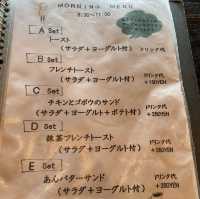 MORNING MENU
8:30~11:00
A Set
トースト
(サラダ+ヨーグルト付) ドリンク代
B Set
フレンチトースト
(サラダ+ヨーグルト付) ドリンク代 +150YEN
C Set
チキンとゴボウのサンド
(サラダ+ヨーグルト+ポテト付) ドリンク代 +250YEN
D Set
抹茶フレンチトースト
(サラダ+ヨーグルト付) ドリンク代 +250YEN
E Set
あんバターサンド
(サラダ+ヨーグルト付) ドリンク代 +250YEN